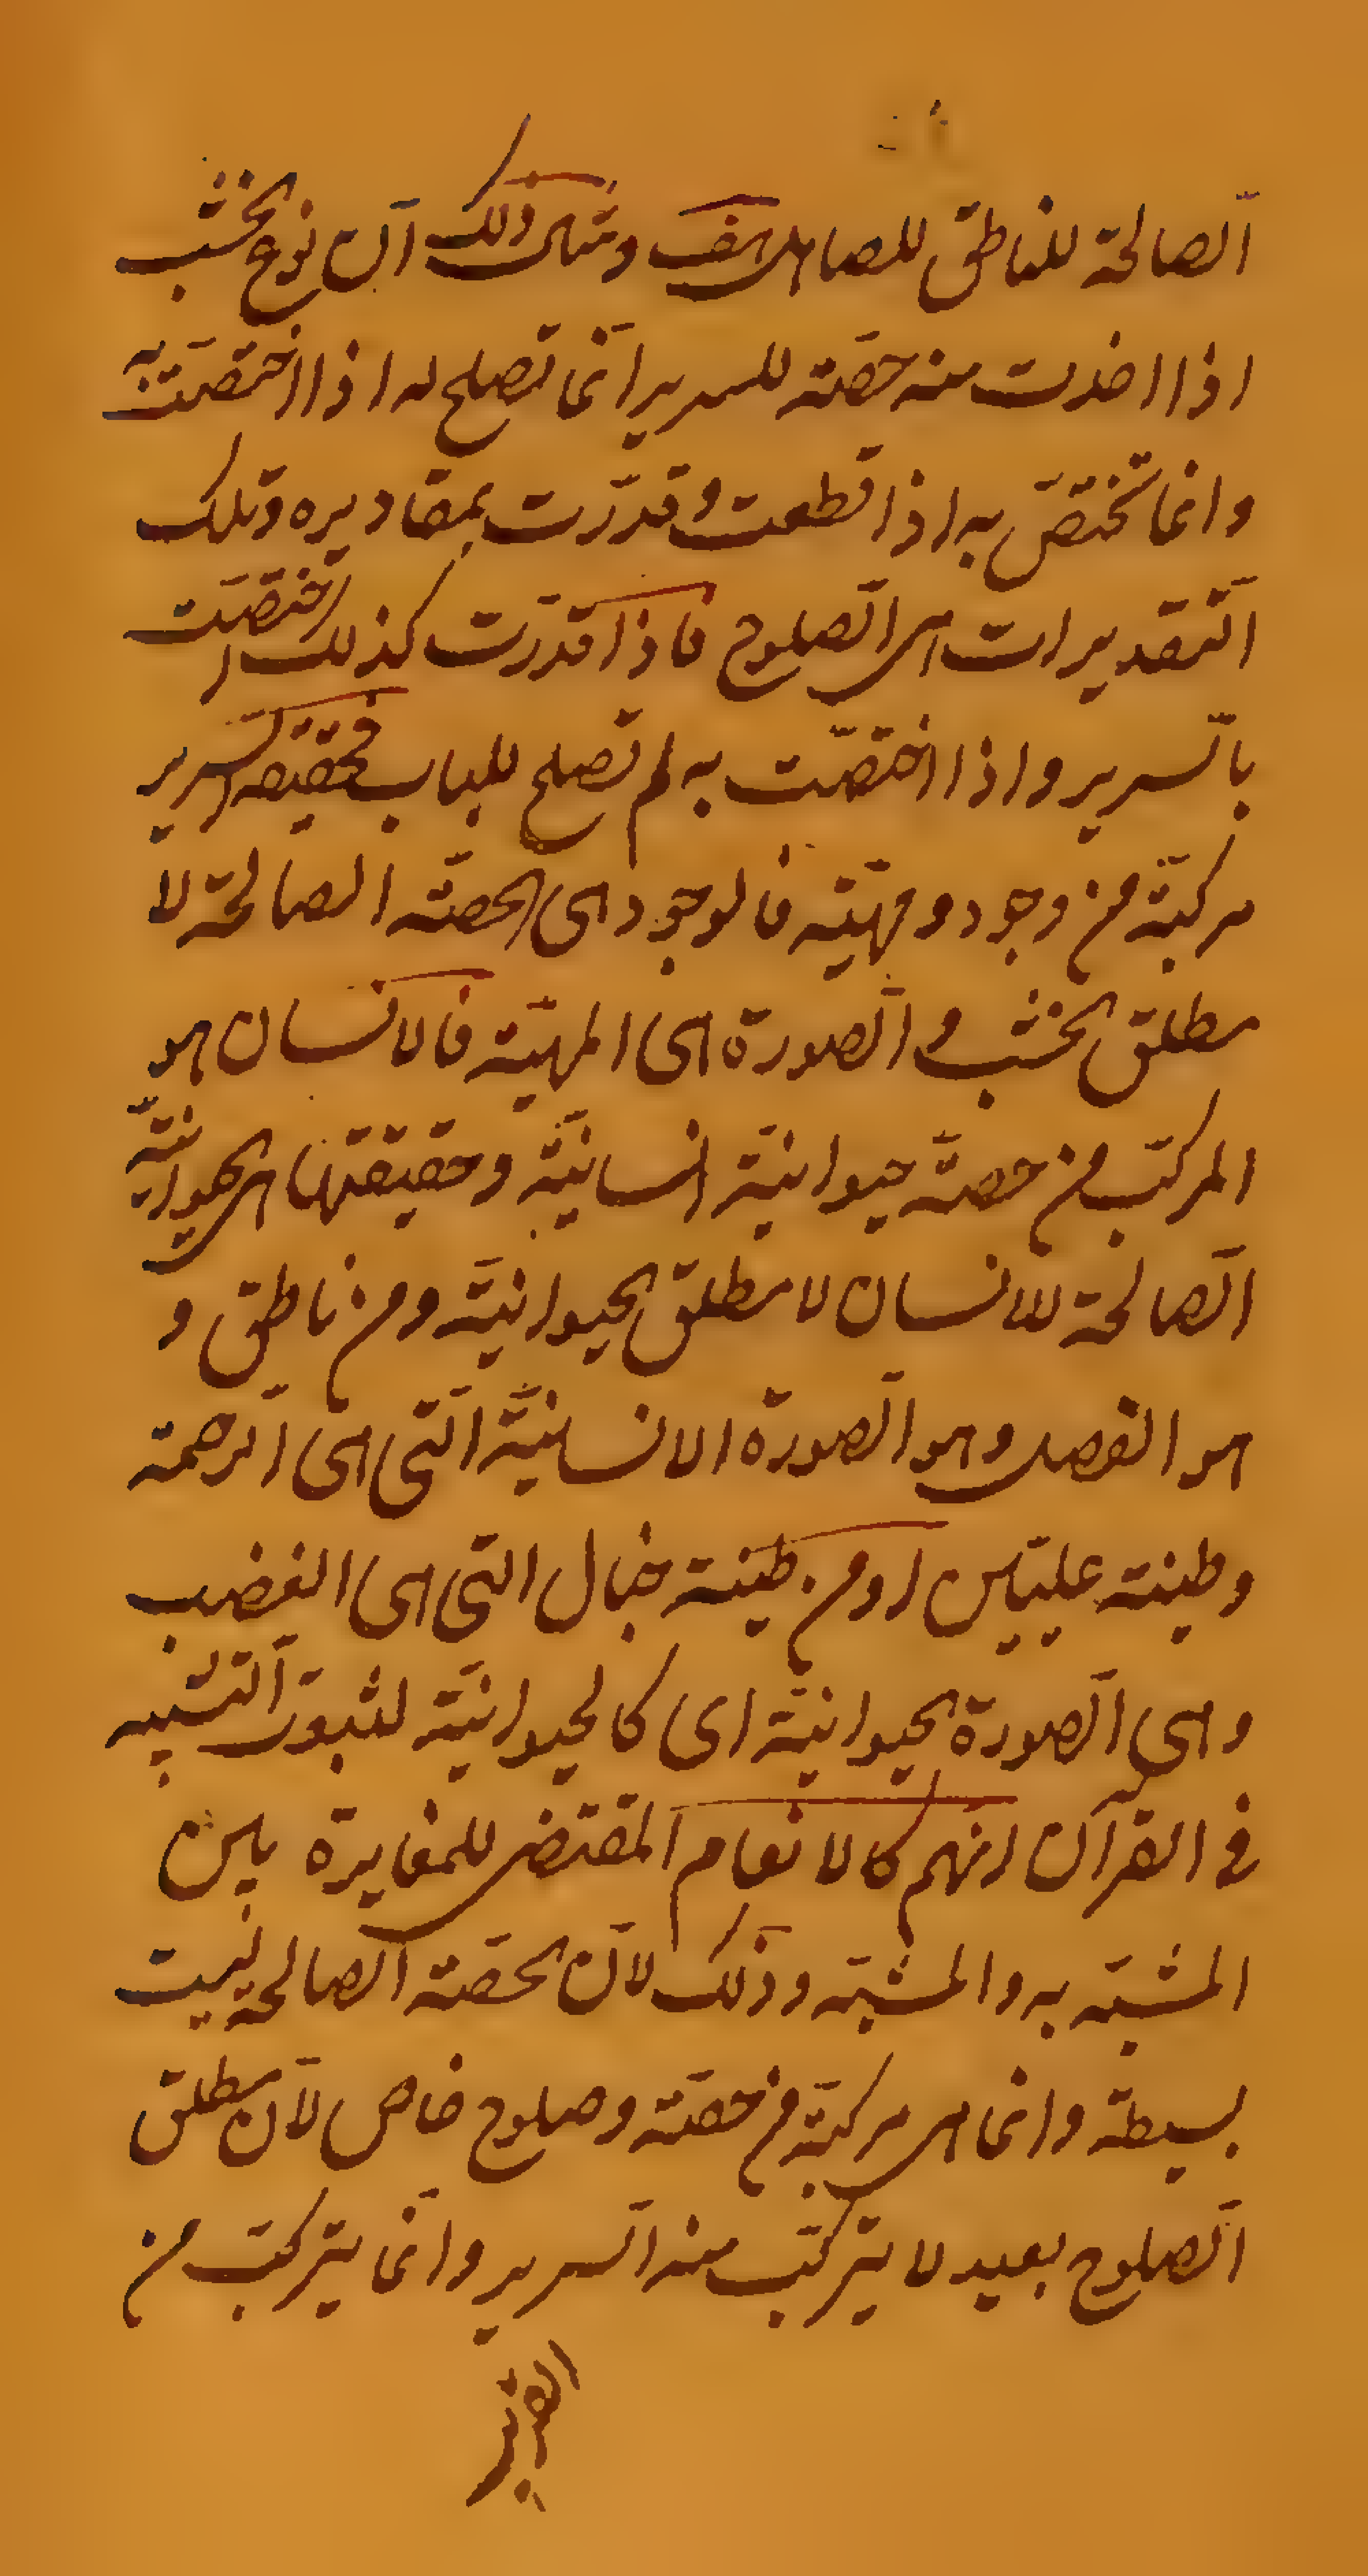 الصالحة للناطق للصاهل هف ومثال ذلك انّ نوع الخشب
اذا اخذت منه حصّة للسرير انّما تصلح له اذا اختصّت به
وانما تختصّ به اذا قطعت وقدّرت بمقاديره وتلك
التّقديرات هى الصّلوح فاذا قدّرت كذلك اختصّت
بالسّرير واذا اختصّت به لم تصلح للباب فحقيقة السرير
مركبّة من وجود ومهيّة فالوجود هى الحصّة الصالحة لا
مطلق الخشب والصّورة هى المهيّة فالانسان هو
المركّب من حصّة حيوانيّة انسانيّة وحقيقتها هى الحيوانيّة
الصّالحة للانسان لا مطلق الحيوانيّة ومن ناطق و
هو الفصل وهو الصّورة الانسانيّة الّتى هى الرّحمة
وطينة عليّين او من طينة خبال التى هى الغضب
وهى الصّورة الحيوانيّة اى كالحيوانيّة لثبوت التّشبيه
فى القرآن انهم كالانعام المقتضى للمغايرة بين
المشبّه به والمشبّه وذلك لانّ الحصّة الصالحة ليست
بسيطة وانما هى مركبّة من حصّة وصلوح خاص لانّ مطلق
الصّلوح بعيد لا يتركّب منه السّرير وانّما يتركّب من
القريب